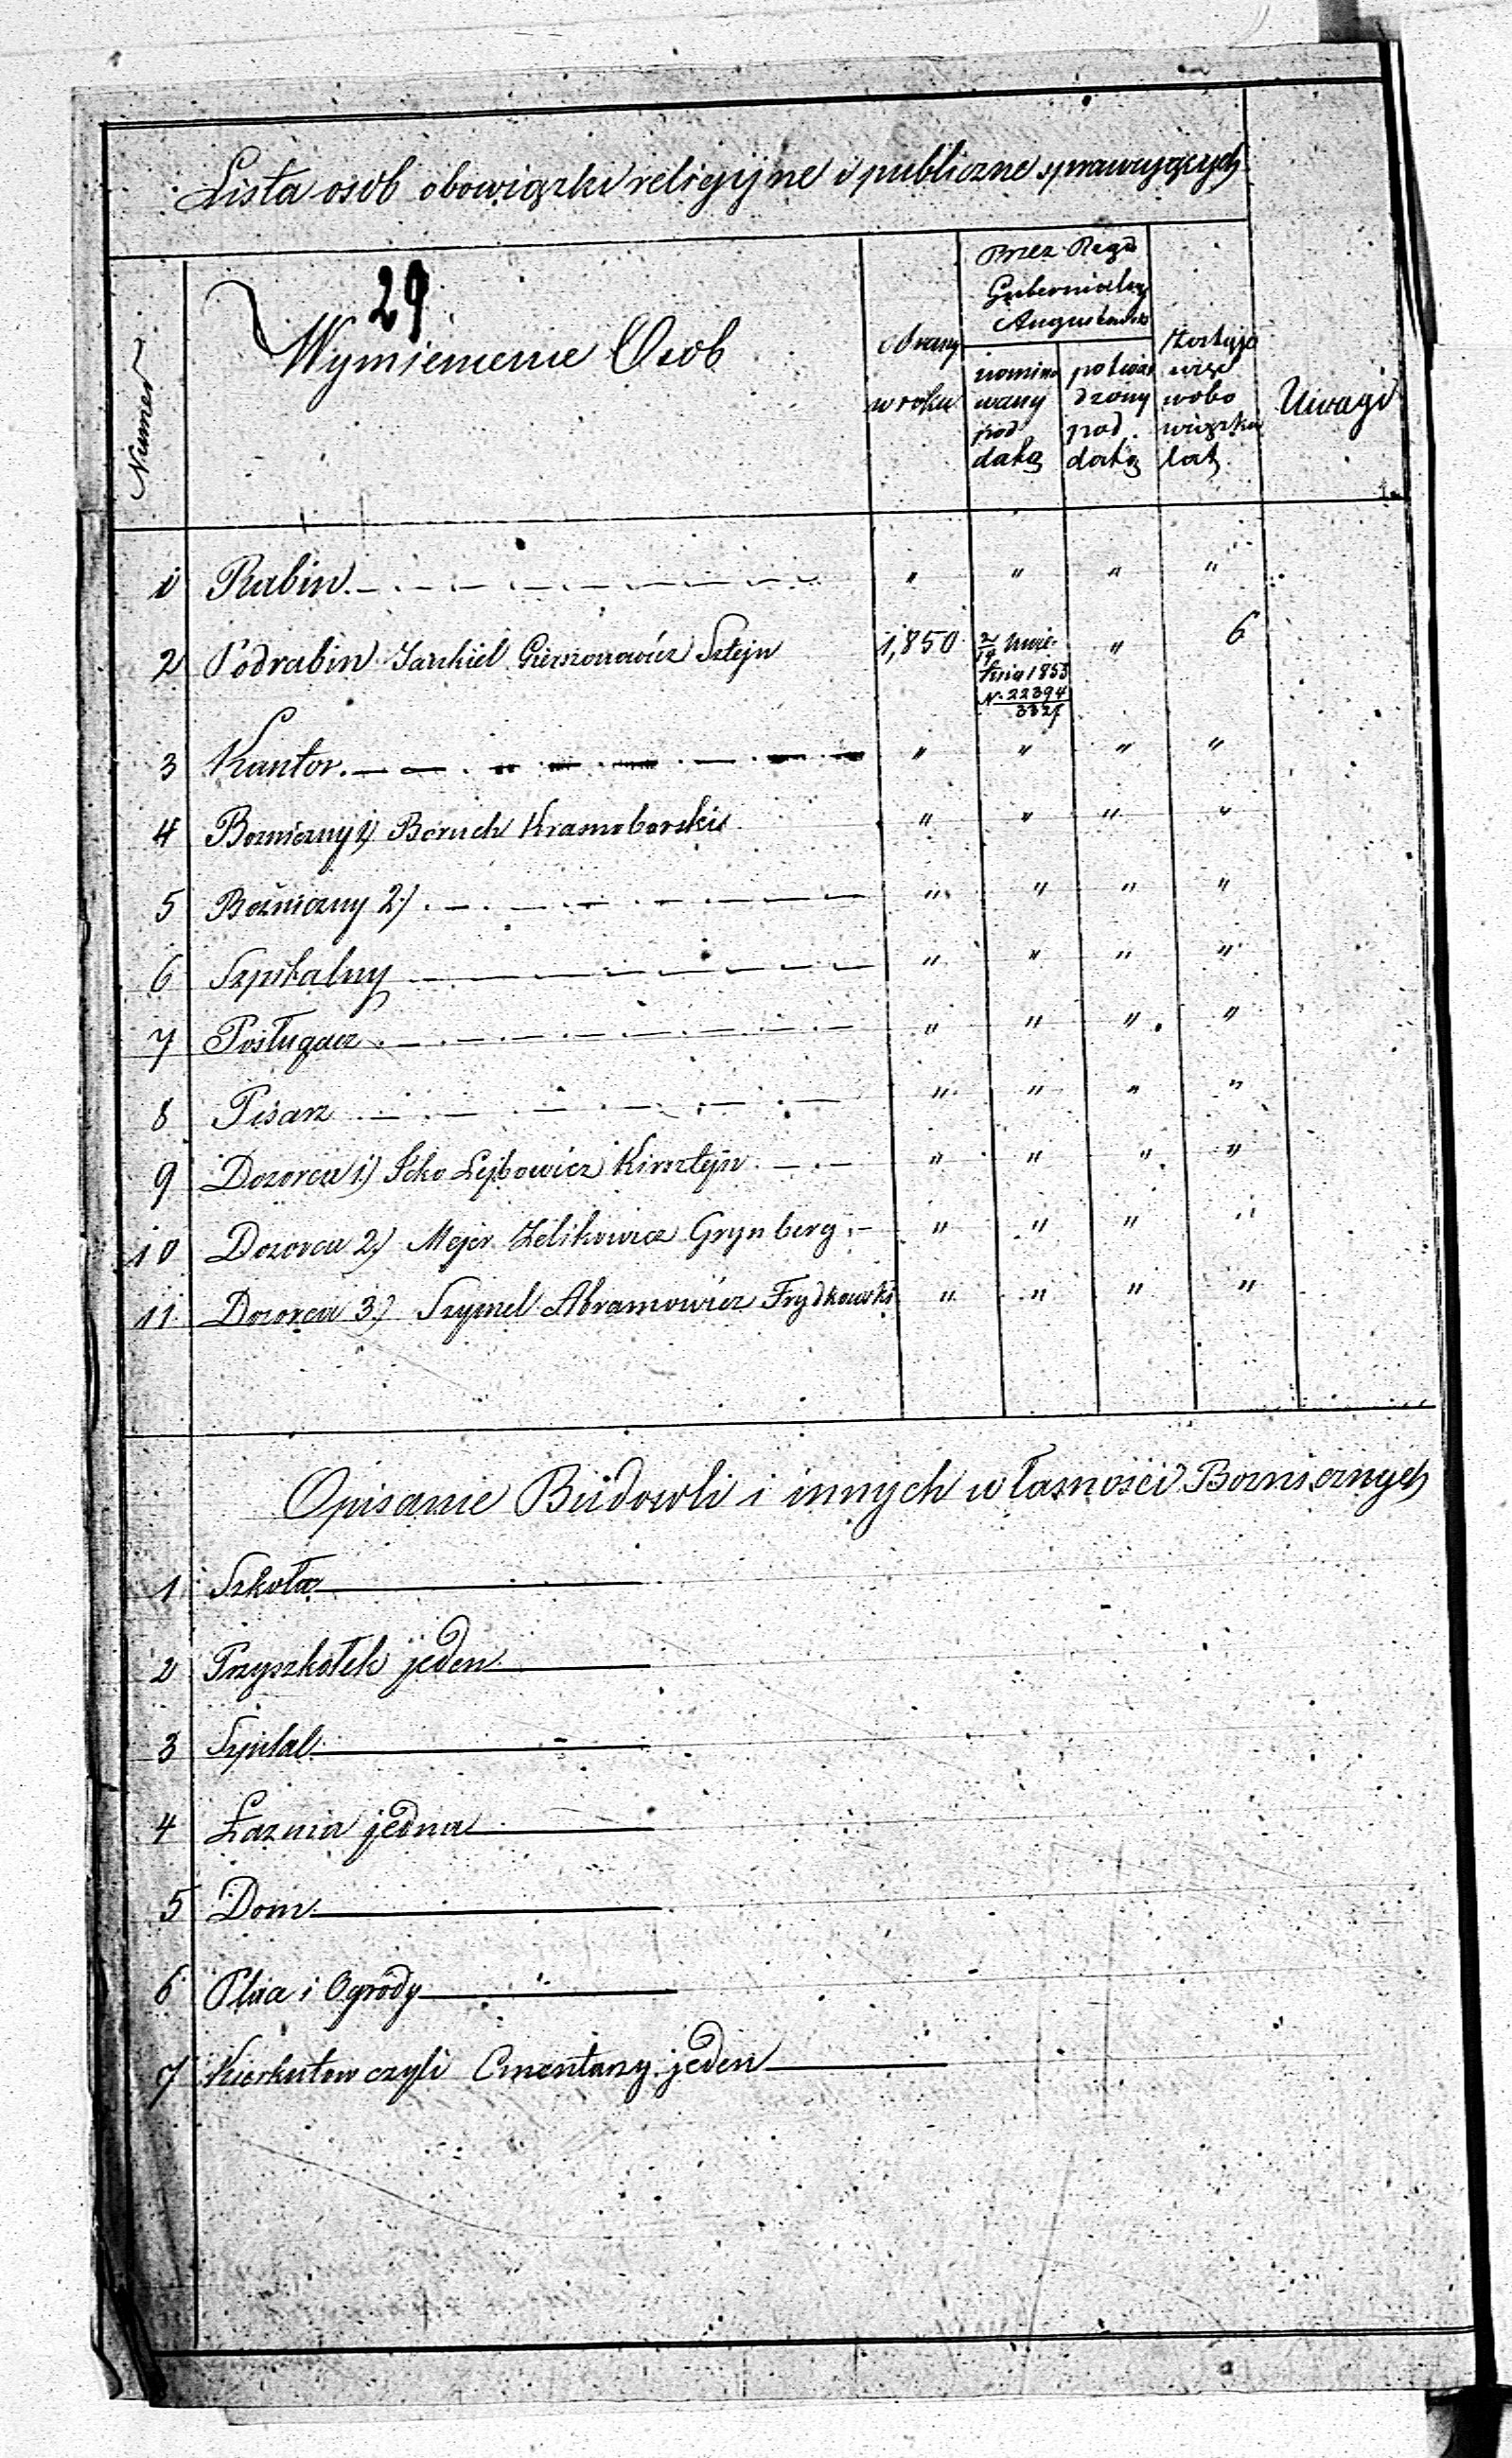 Lista osob obowiązki religijne i publiczne sprawujących
29
Numer
Wymienienie Osob
obrany
w roku
Przez Rząd
Gubernialny
Augustowski
nomino
wany
pod
datą
potwier
dzony
pod
datą
zostaje
więc
w obo
wiązku
lat
Uwagi
1 Rabin " " " "
2 Podrabin Jankiel Gierszonowicz Sztejn 1,850 2/14 Kwie-
tnia 1853
N. 22394
3321
" 6
3 Kantor " " " "
4 Bozniczny 1) Boruch Kramoborski " " " "
5 Bożniczny 2) " " " "
6 Szpitalny " " " "
7 Posługacz " " " "
8 Pisarz " " " "
9 Dozorca 1) Icko Lejbowicz Kirsztejn " " " "
10 Dozorca 2) Mejer Zelikowicz Grynberg " " " "
11 Dozorca 3) Szymel Abramowicz Frydkowski " " " "
Opisanie Budowli i innych własności Boznicznych
1 Szkoła
2 Przyszkołek jeden
3 Szpital
4 Łaznia jedna
5 Dom
6 Place i Ogrody
7 Kierkutow czyli Cmentarzy jeden